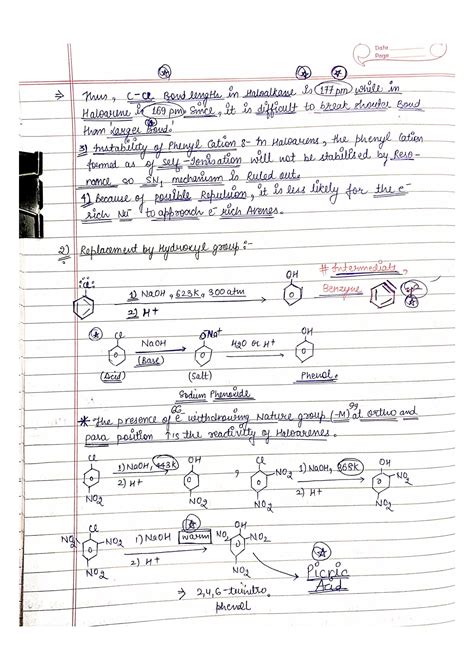 Date
Page
⇒ Thus, C-Cl Bond length in Haloalkane is 177 pm while in
Haloarene is 169 pm. Since, it is difficult to break shorter Bond
than larger Bond.
3) Instability of Phenyl Cation :- In Haloarens, the phenyl Cation
formed as of self-Ionisation will not be stabilised by Reso-
nance so SN1 mechanism is Ruled out.
4) Because of possible Repulsion, it is less likely for the e-
rich Nu- to approach e- rich Arenes.
2) Replacement by Hydroxyl group :-
:Cl: 1) NaOH, 623K, 300 atm OH # Intermediate,
2) H+ Benzyne
Cl NaOH ONa+ H2O or H+ OH
(Base)
(Acid) (Salt) Phenol.
Sodium Phenoxide
* The presence of e- withdrawing Nature group (-M) at ortho and
para position ↑s the reactivity of Haloarenes.
Cl 1) NaOH, 443K OH , Cl NO2 1) NaOH, 368K OH NO2
2) H+ 2) H+
NO2 NO2 NO2 NO2
NO2 Cl NO2 1) NaOH warm OH NO2 NO2
2) H+
NO2 NO2 Picric
Acid
→ 2,4,6-trinitro
phenol